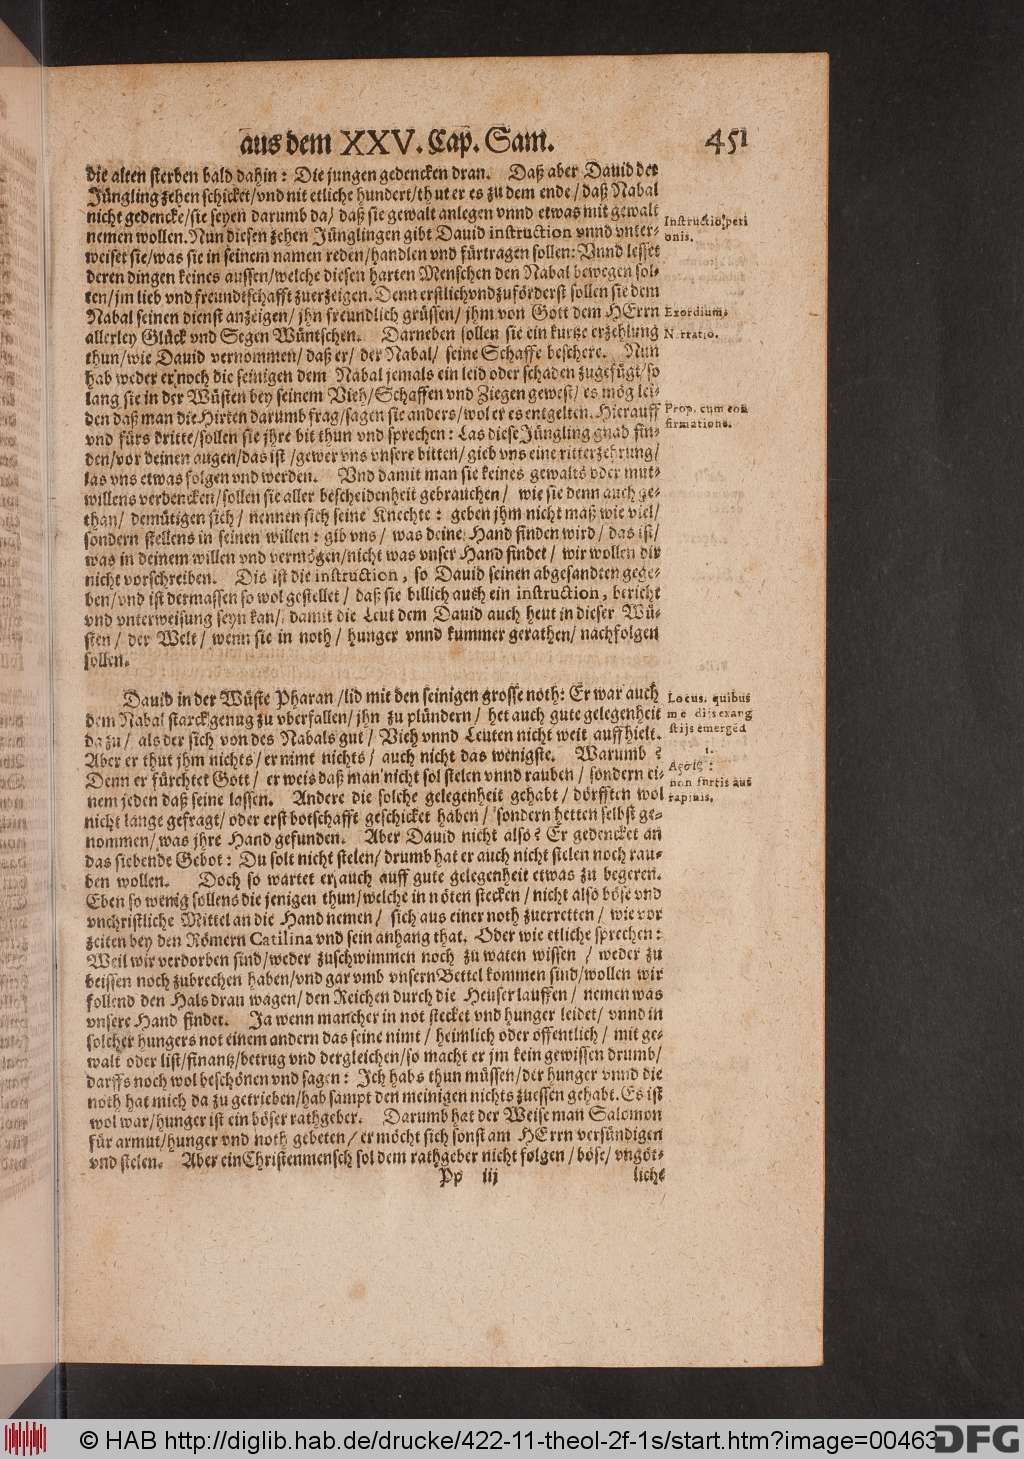 aus dem XXV. Cap. Sam. 451
die alten sterben bald dahin: Die jungen gedencken dran. Daß aber Dauid der
Jüngling zehen schicket/vnd nit etliche hundert/thut er es zu dem ende/daß Nabal
nicht gedencke/sie seyen darumb da/ daß sie gewalt anlegen vnnd etwas mit gewalt
nemen wollen. Nun diesen zehen Jünglingen gibt Dauid instruction vnnd vnter-
weiset sie/was sie in seinem namen reden/handlen vnd fürtragen sollen: Vnnd lesset
deren dingen keines aussen/welche diesen harten Menschen den Nabal bewegen sol-
ten/jm lieb vnd freundtschafft zuerzeigen. Denn erstlich vnd zuförderst sollen sie dem
Nabal seinen dienst anzeigen/ jhn freundlich grüssen/ jhm von Gott dem HErrn
allerley Glück vnd Segen Wüntschen. Darneben sollen sie ein kurtze erzehlung
thun/wie Dauid vernommen/ daß er/ der Nabal/ seine Schaffe beschere. Nun
hab weder er noch die seinigen dem Nabal jemals ein leid oder schaden zugefügt/so
lang sie in der Wüsten bey seinem Vieh/Schaffen vnd Ziegen gewest/ es mög lei-
den daß man die Hirten darumb frag/sagen sie anders/wol er es entgelten. Hierauff
vnd fürs dritte/sollen sie jhre bit thun vnd sprechen: Las diese Jüngling gnad fin-
den/vor deinen augen/das ist /gewer vns vnsere bitten/ gieb vns eine ritterzehrung/
las vns etwas folgen vnd werden. Vnd damit man sie keines gewalts oder mut-
willens verdencken/sollen sie aller bescheidenheit gebrauchen/ wie sie denn auch ge-
than/ demütigen sich/ nennen sich seine Knechte: geben jhm nicht maß wie viel/
sondern stellens in seinen willen: gib vns/ was deine Hand finden wird/ das ist/
was in deinem willen vnd vermögen/nicht was vnser Hand findet/ wir wollen dir
nicht vorschreiben. Dis ist die instruction, so Dauid seinen abgesandten gege-
ben/vnd ist dermassen so wol gestellet/ daß sie billich auch ein instruction, bericht
vnd vnterweisung seyn kan/ damit die Leut dem Dauid auch heut in dieser Wü-
sten/ der Welt/ wenn sie in noth/ hunger vnnd kummer gerathen/ nachfolgen
sollen.
Instructio peri
onis.
Exordium.
Prop. cum con
firmatione.
Dauid in der Wüste Pharan/lid mit den seinigen grosse noth: Er war auch
dem Nabal starck genug zu vberfallen/jhn zu plündern/ het auch gute gelegenheit
da zu/ als der sich von des Nabals gut/ Vieh vnnd Leuten nicht weit auffhielt.
Aber er thut jhm nichts/er nimt nichts/ auch nicht das wenigste. Warumb?
Denn er fürchtet Gott/ er weis daß man nicht sol stelen vnnd rauben/ sondern ei-
nem jeden daß seine lassen. Andere die solche gelegenheit gehabt/ dörfften wol
nicht lange gefragt/oder erst botschafft geschicket haben/ sondern hetten selbst ge-
nommen/was jhre Hand gefunden. Aber Dauid nicht also? Er gedencket an
das siebende Gebot: Du solt nicht stelen/ drumb hat er auch nicht stelen noch rau-
ben wollen. Doch so wartet er auch auff gute gelegenheit etwas zu begeren.
Eben so wenig sollens die jenigen thun/welche in nöten stecken/ nicht also böse vnd
vnchristliche Mittel an die Hand nemen/ sich aus einer noth zuerretten/ wie vor
zeiten bey den Römern Catilina vnd sein anhang that. Oder wie etliche sprechen:
Weil wir verdorben sind/weder zuschwimmen noch zu waten wissen/ weder zu
beissen noch zubrechen haben/vnd gar vmb vnsern Bettel kommen sind/wollen wir
follend den Hals dran wagen/den Reichen durch die Heuser lauffen/ nemen was
vnsere Hand findet. Ja wenn mancher in not stecket vnd hunger leidet/ vnnd in
solcher hungers not einem andern das seine nimt/ heimlich oder offentlich/ mit ge-
walt oder list/finantz/betrug vnd dergleichen/so macht er jm kein gewissen drumb/
darffs noch wol beschönen vnd sagen: Ich habs thun müssen/der hunger vnnd die
noth hat mich da zu getrieben/hab sampt den meinigen nichts zuessen gehabt. Es ist
wol war/hunger ist ein böser rathgeber. Darumb hat der Weise man Salomon
für armut/hunger vnd noth gebeten/ er möcht sich sonst am HErrn versündigen
vnd stelen. Aber ein Christenmensch sol dem rathgeber nicht folgen/böse/ vngöt-
Locus. quibus
me diis ex ang
stijs emergēd
1.
non furtis aut
rapinis.
Pp iij
liche
© HAB http://diglib.hab.de/drucke/422-11-theol-2f-1s/start.htm?image=00463
DFG